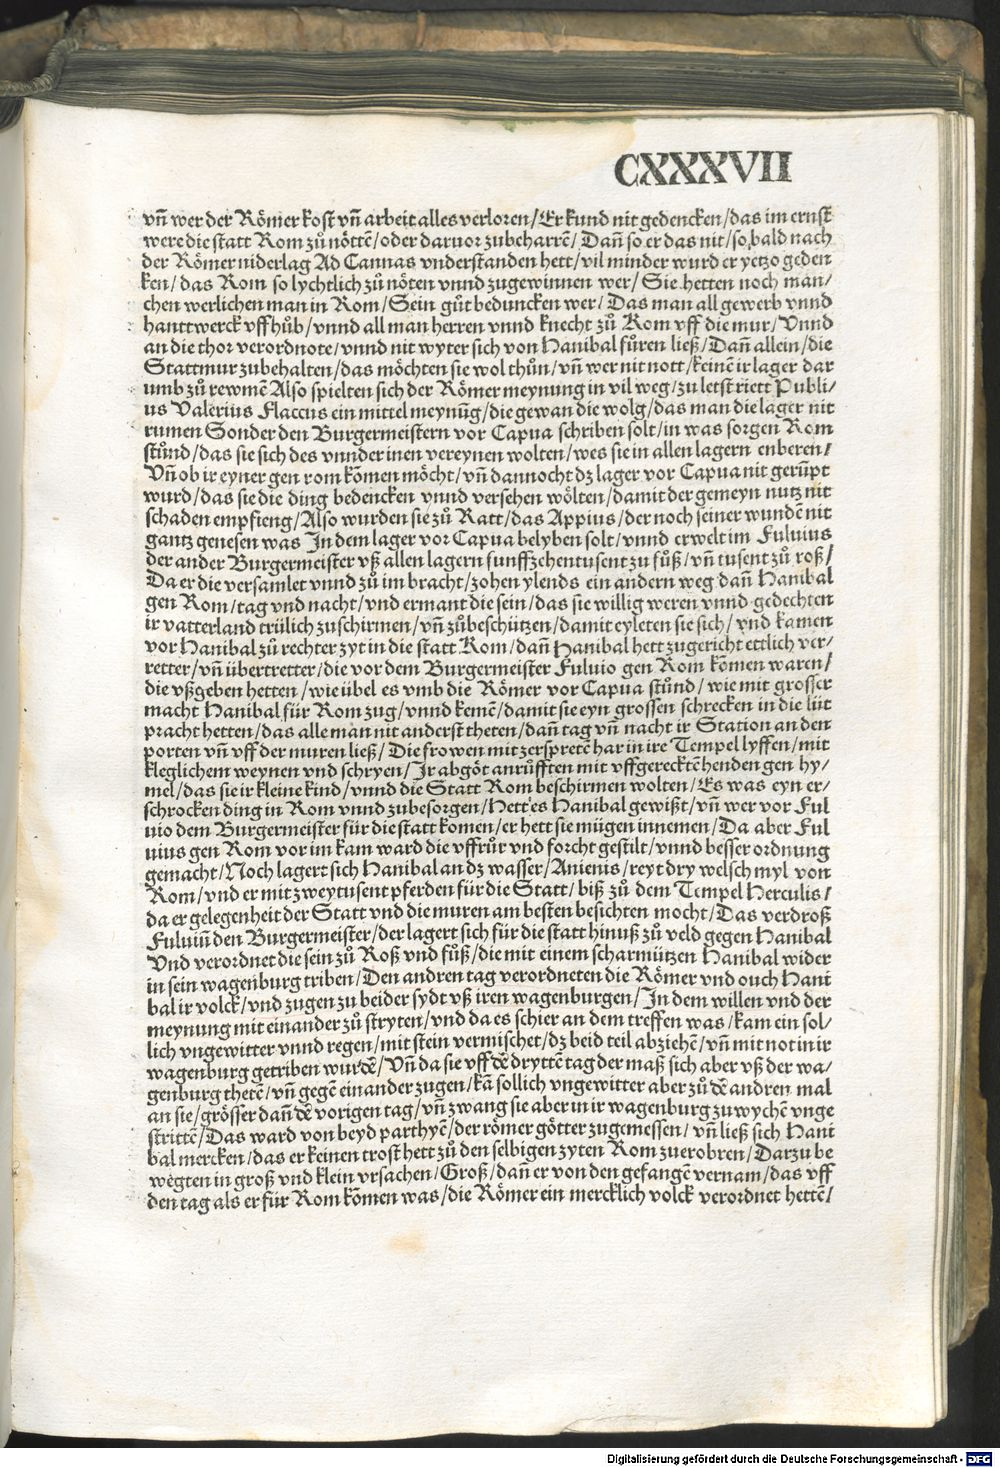 CXXXVII
vñ wer der Römer kost vñ arbeit alles verloren/Er kund nit gedencken/das im ernst
were die statt Rom zů nöttē/oder daruor zubeharrē/Dañ so er das nit/so bald nach
der Römer niderlag Ad Cannas vnderstanden hett/vil minder wurd er yetzo geden
ken/das Rom so lychtlich zů nöten vnnd zugewinnen wer/Sie hetten noch man/
chen werlichen man in Rom/Sein gůt beduncken wer/Das man all gewerb vnnd
hanttwerck vffhůb/vnnd all man herren vnnd knecht zů Rom vff die mur/Vnnd
an die thor verordnote/vnnd nit wyter sich von Hanibal fůren ließ/Dañ allein/die
Stattmur zubehalten/das möchten sie wol thůn/vñ wer nit nott/keinē ir lager dar
umb zů rewmē Also spielten sich der Römer meynung in vil weg/zu letst riett Publi/
us Valerius Flaccus ein mittel meynūg/die gewan die wolg/das man die lager nit
rumen Sonder den Burgermeistern vor Capua schriben solt/in was sorgen Rom
stůnd/das sie sich des vnnder inen vereynen wolten/wes sie in allen lagern enberen/
Vñ ob ir eyner gen rom kōmen möcht/vñ dannocht dz lager vor Capua nit gerūpt
wurd/das sie die ding bedencken vnnd versehen wölten/damit der gemeyn nutz nit
schaden empfieng/Also wurden sie zů Ratt/das Appius/der noch seiner wundē nit
gantz genesen was In dem lager vor Capua belyben solt/vnnd erwelt im Fuluius
der ander Burgermeister vß allen lagern funffzehentusent zu fůß/vñ tusent zů roß/
Da er die versamlet vnnd zů im bracht/zohen ylends ein andern weg dañ Hanibal
gen Rom/tag vnd nacht/vnd ermant die sein/das sie willig weren vnnd gedechten
ir vatterland trülich zuschirmen/vñ zůbeschützen/damit eyleten sie sich/vnd kamen
vor Hanibal zů rechter zyt in die statt Rom/dañ Hanibal hett zugericht ettlich ver-
retter/vñ übertretter/die vor dem Burgermeister Fuluio gen Rom kōmen waren/
die vßgeben hetten/wie übel es vmb die Römer vor Capua stůnd/wie mit grosser
macht Hanibal für Rom zug/vnnd kemē/damit sie eyn grossen schrecken in die lüt
pracht hetten/das alle man nit anderst theten/dañ tag vñ nacht ir Station an den
porten vñ vff der muren ließ/Die frowen mit zerspretē har in ire Tempel lyffen/mit
kleglichem weynen vnd schryen/Ir abgöt anrůfften mit vffgerecktē henden gen hy/
mel/das sie ir kleine kind/vnnd die Statt Rom beschirmen wolten/Es was eyn er-
schrocken ding in Rom vnnd zubesorgen/Hett es Hanibal gewißt/vñ wer vor Ful
uio dem Burgermeister für die statt komen/er hett sie mügen innemen/Da aber Ful
uius gen Rom vor im kam ward die vffrůr vnd forcht gestilt/vnnd besser ordnung
gemacht/Noch lagert sich Hanibal an dz wasser/Anienis/reyt dry welsch myl von
Rom/vnd er mit zweytusent pferden für die Statt/biß zů dem Tempel Herculis/
da er gelegenheit der Statt vnd die muren am besten besichten mocht/Das verdroß
Fuluiū den Burgermeister/der lagert sich für die statt hinuß zů veld gegen Hanibal
Vnd verordnet die sein zů Roß vnd fůß/die mit einem scharmützen Hanibal wider
in sein wagenburg triben/Den andren tag verordneten die Römer vnd ouch Hani
bal ir volck/vnd zugen zu beider sydt vß iren wagenburgen/In dem willen vnd der
meynung mit einander zů stryten/vnd da es schier an dem treffen was/kam ein sol-
lich vngewitter vnnd regen/mit stein vermischet/dz beid teil abziehē/vñ mit not in ir
wagenburg getriben wurdē/Vñ da sie vff dē dryttē tag der maß sich aber vß der wa-
genburg thetē/vñ gegē einander zugen/kā sollich vngewitter aber zů dē andren mal
an sie/grösser dañ dē vorigen tag/vñ zwang sie aber in ir wagenburg zu wychē vnge
strittē/Das ward von beyd parthyē/der römer götter zugemessen/vñ ließ sich Hani
bal mercken/das er keinen trost hett zů den selbigen zyten Rom zuerobren/Darzu be
wēgten in groß vnd klein vrsachen/Groß/dañ er von den gefangē vernam/das vff
den tag als er für Rom kōmen was/die Römer ein mercklich volck verordnet hettē/
Digitalisierung gefördert durch die Deutsche Forschungsgemeinschaft - DFG